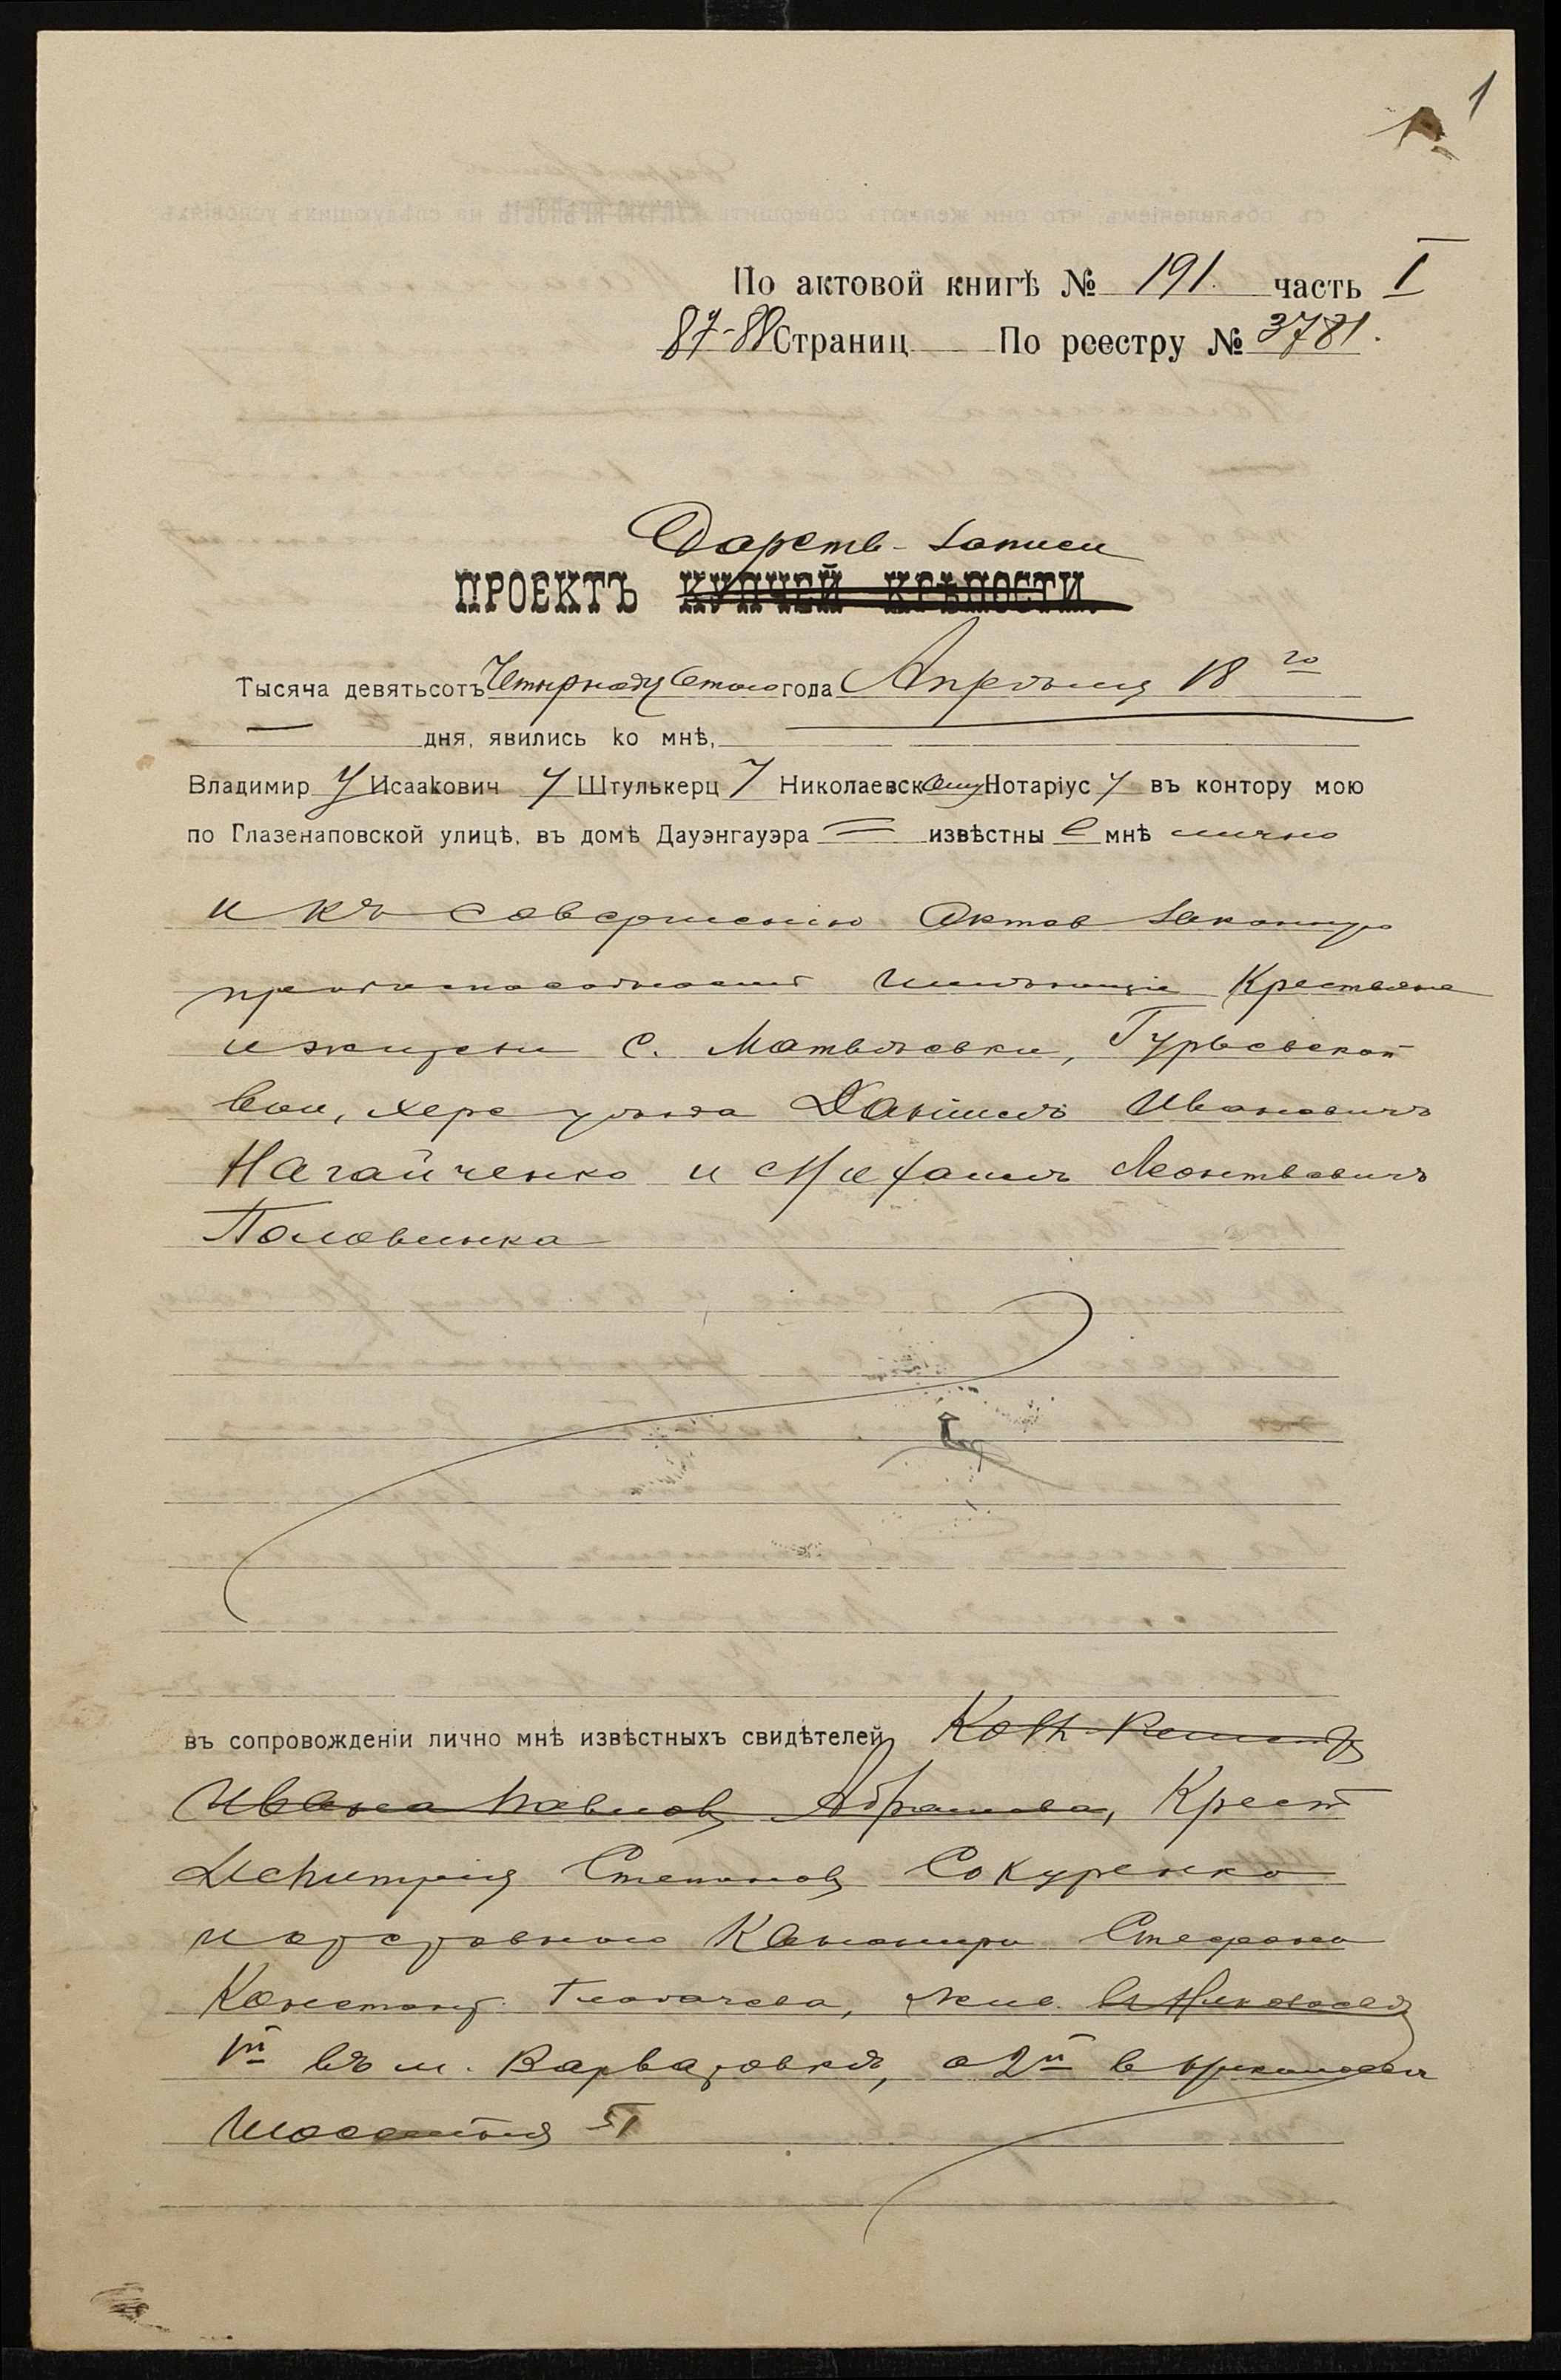 1
По актовой книгѣ № 191. часть I
87-88 Страниц По реестру № 3781.
Дарств. записи
ПРОЕКТЪ КУПЧЕЙ КРѢПОСТИ.
Тысяча девятьсотъ Четырнадцатого года Апрѣля 18 го
дня, явились ко мнѣ,
Владимир у Исаакович у Штулькерц у Николаевскому Нотаріус у въ контору мою
по Глазенаповской улицѣ, въ домѣ Дауэнгауэра извѣстные мнѣ лично
и къ совершенію актов законную
правоспособность имѣющіе Крестьяне
и жители с. Матвѣевки, Гурьевской
вол., Херс уѣзда Даніилъ Ивановичъ
Нагайченко и Михаилъ Леонтьевичъ
Половинка
въ сопровожденіи лично мнѣ извѣстныхъ свидѣтелей
Ивана Павлов Абрамова, Крест
Дмитрія Степанов Сокуренко
и Канонира Стефана
Констант. Глобачева, жив. в Николаевѣ
1й въ м. Варваровкѣ, а 2й в Николаевѣ